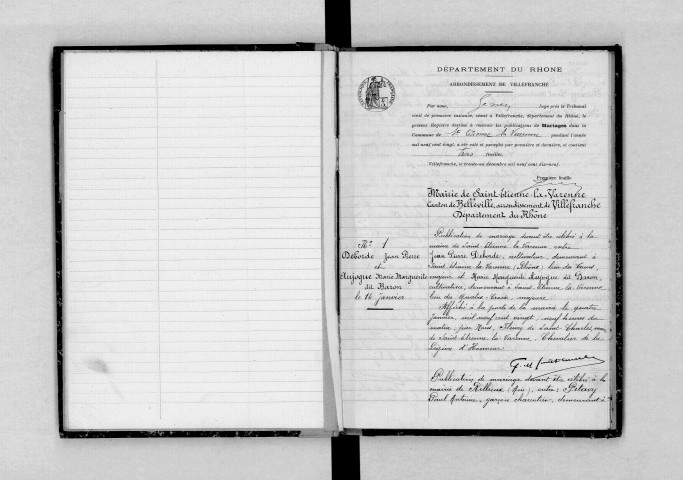 DÉPARTEMENT DU RHONE
ARRONDISSEMENT DE VILLEFRANCHE
Par nous, Juge près le Tribunal
civil de première instance, séant à Villefranche, département du Rhône, le
présent Registre destiné à recevoir les publications de Mariages dans la
Commune de St Etienne la Varenne pendant l'année
mil neuf cent vingt, a été coté et paraphé par première et dernière, et contient
Trois feuilles
Villefranche, le trente-un décembre mil neuf cent dix-neuf.
Première feuille
Mairie de Saint-Etienne-la-Varenne
Canton de Belleville, arrondissement de Villefranche
Département du Rhône
No 1
Deborde Jean Pierre
et
Aujogue Marie Marguerite
dit Baron
le 14 janvier
Publication de mariage devant être célébré à la
mairie de Saint Etienne la Varenne entre
Jean Pierre Deborde, cultivateur, demeurant à
Saint Etienne la Varenne (Rhône) lieu du
majeur et Marie Marguerite Aujogue dit Baron,
cultivatrice, demeurant à Saint Etienne la Varenne
lieu du majeure
Affichée à la porte de la mairie le quatre
janvier, mil neuf cent vingt, neuf heures du
matin, par Nous, Fleury de Saint Charles, maire
de Saint Etienne la Varenne, Chevalier de la
Légion d'Honneur.
Publication de mariage devant être célébré à la
mairie de Rillieux (Ain), entre:
Paul Antoine, garçon charcutier, demeurant à